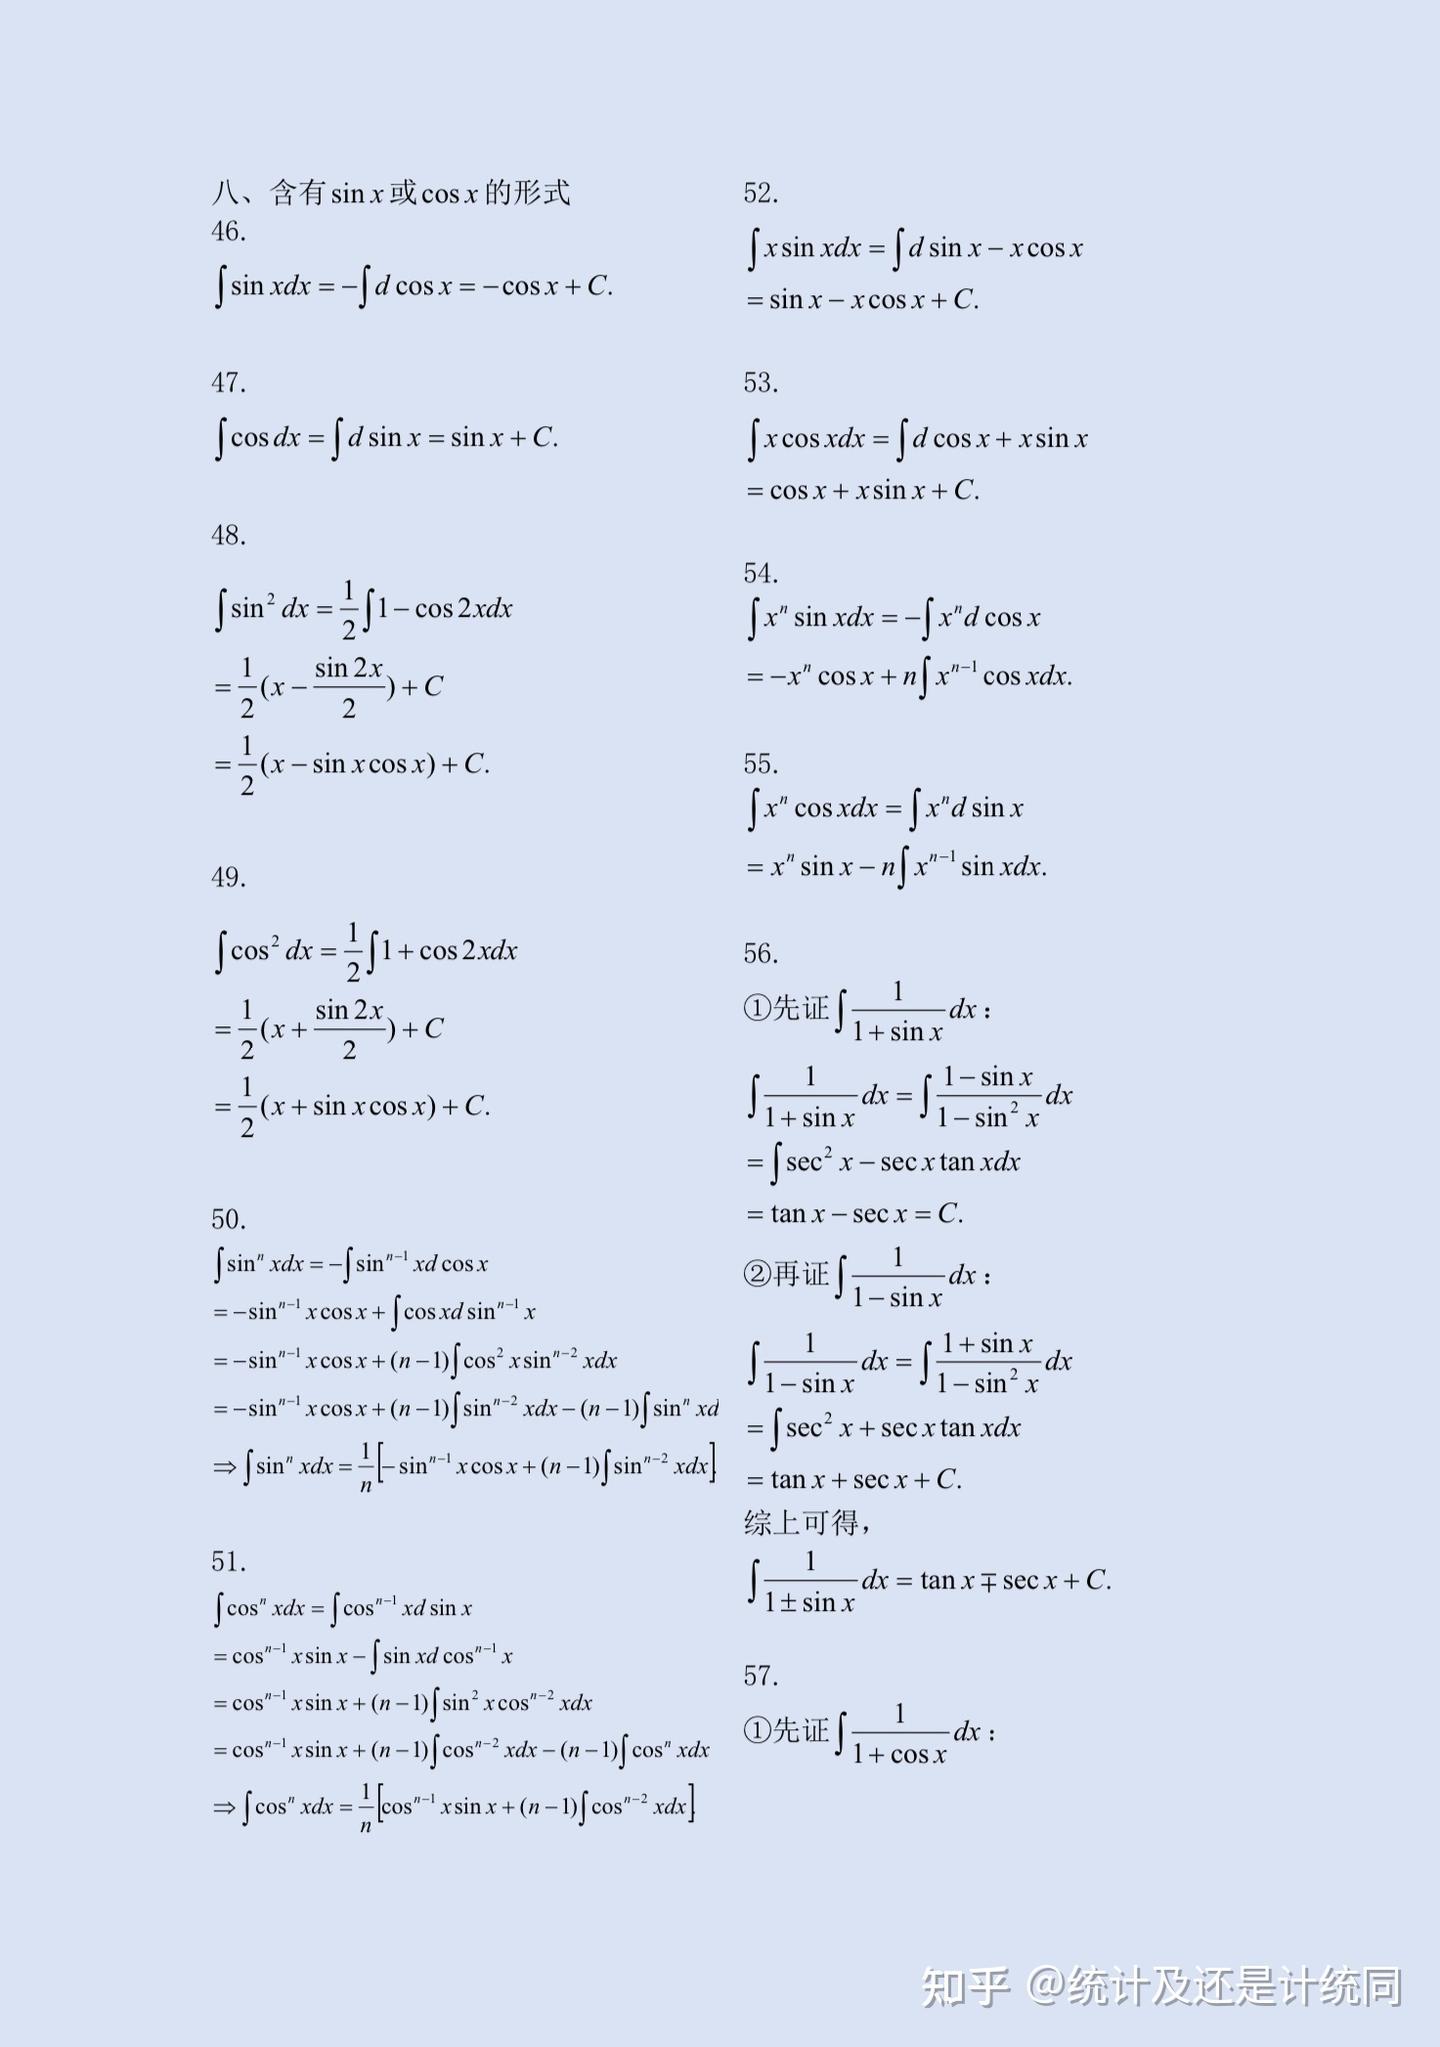 八、含有 sin x 或 cos x 的形式
46.
∫ sin xdx = −∫ d cos x = −cos x + C.
47.
∫ cos dx = ∫ d sin x = sin x + C.
48.
∫ sin² dx = 1/2 ∫ 1 − cos 2xdx
= 1/2 (x − sin 2x/2) + C
= 1/2 (x − sin x cos x) + C.
49.
∫ cos² dx = 1/2 ∫ 1 + cos 2xdx
= 1/2 (x + sin 2x/2) + C
= 1/2 (x + sin x cos x) + C.
50.
∫ sinⁿ xdx = −∫ sinⁿ⁻¹ xd cos x
= −sinⁿ⁻¹ x cos x + ∫ cos xd sinⁿ⁻¹ x
= −sinⁿ⁻¹ x cos x + (n−1)∫ cos² x sinⁿ⁻² xdx
= −sinⁿ⁻¹ x cos x + (n−1)∫ sinⁿ⁻² xdx − (n−1)∫ sinⁿ xd
⇒ ∫ sinⁿ xdx = 1/n [−sinⁿ⁻¹ x cos x + (n−1)∫ sinⁿ⁻² xdx]
51.
∫ cosⁿ xdx = ∫ cosⁿ⁻¹ xd sin x
= cosⁿ⁻¹ x sin x − ∫ sin xd cosⁿ⁻¹ x
= cosⁿ⁻¹ x sin x + (n−1)∫ sin² x cosⁿ⁻² xdx
= cosⁿ⁻¹ x sin x + (n−1)∫ cosⁿ⁻² xdx − (n−1)∫ cosⁿ xdx
⇒ ∫ cosⁿ xdx = 1/n [cosⁿ⁻¹ x sin x + (n−1)∫ cosⁿ⁻² xdx]
52.
∫ x sin xdx = ∫ d sin x − x cos x
= sin x − x cos x + C.
53.
∫ x cos xdx = ∫ d cos x + x sin x
= cos x + x sin x + C.
54.
∫ xⁿ sin xdx = −∫ xⁿd cos x
= −xⁿ cos x + n∫ xⁿ⁻¹ cos xdx.
55.
∫ xⁿ cos xdx = ∫ xⁿd sin x
= xⁿ sin x − n∫ xⁿ⁻¹ sin xdx.
56.
①先证 ∫ 1/(1 + sin x) dx：
∫ 1/(1 + sin x) dx = ∫ (1 − sin x)/(1 − sin² x) dx
= ∫ sec² x − sec x tan xdx
= tan x − sec x = C.
②再证 ∫ 1/(1 − sin x) dx：
∫ 1/(1 − sin x) dx = ∫ (1 + sin x)/(1 − sin² x) dx
= ∫ sec² x + sec x tan xdx
= tan x + sec x + C.
综上可得，
∫ 1/(1 ± sin x) dx = tan x ∓ sec x + C.
57.
①先证 ∫ 1/(1 + cos x) dx：
知乎 @统计及还是计统同